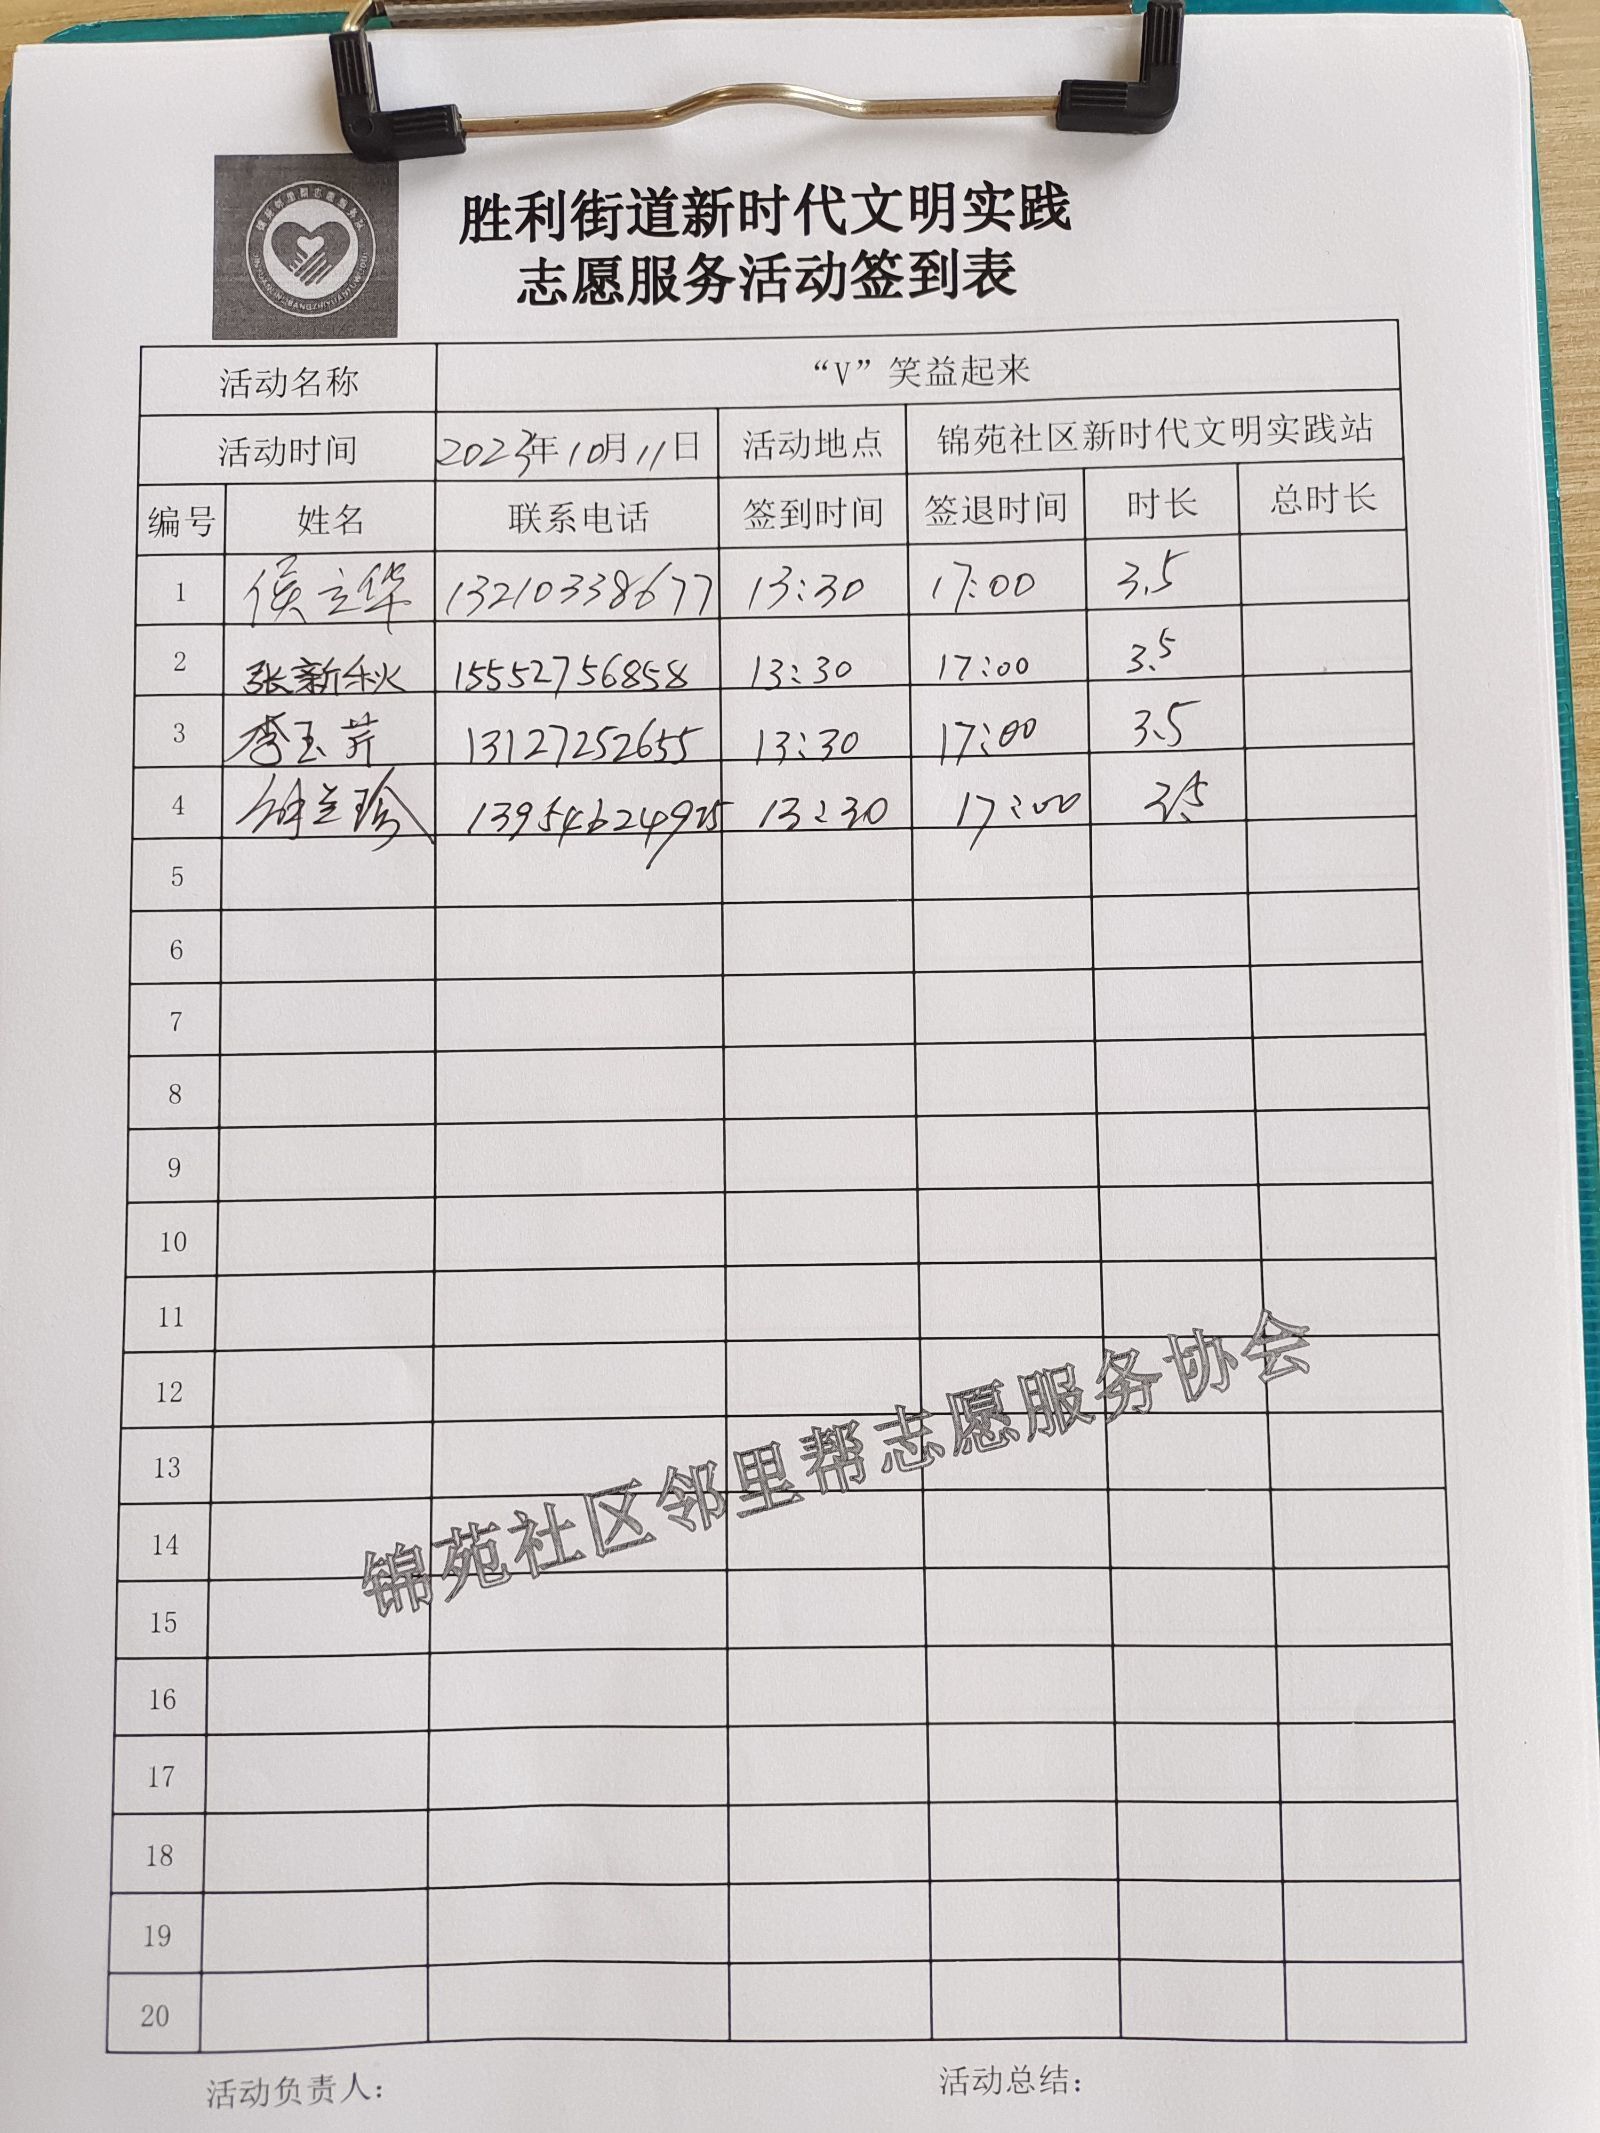 胜利街道新时代文明实践
志愿服务活动签到表
活动名称 “V”笑益起来
活动时间 2023年10月11日 活动地点 锦苑社区新时代文明实践站
编号 姓名 联系电话 签到时间 签退时间 时长 总时长
1 侯立华 13210338677 13:30 17:00 3.5
2 张新秋 15552756858 13:30 17:00 3.5
3 李玉芹 13127252655 13:30 17:00 3.5
4 兰珍 13954624925 13:30 17:00 3.5
5
6
7
8
9
10
11
12
13
14
15
16
17
18
19
20
锦苑社区邻里帮志愿服务协会
活动负责人：
活动总结：